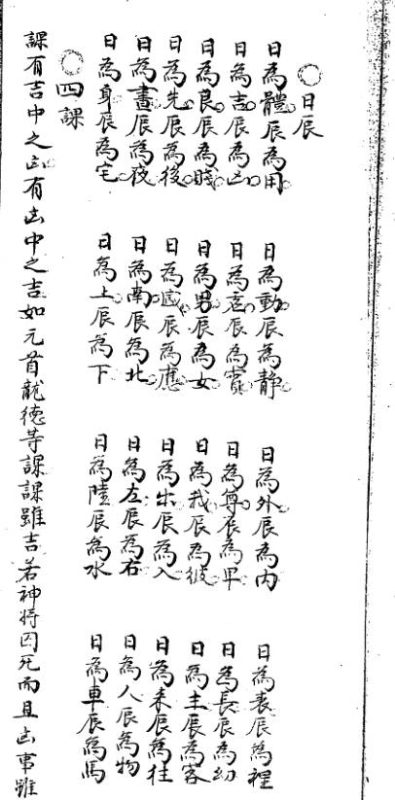 ○日辰
日為體辰為用　日為動辰為静　日為外辰為内　日為表辰為裡
日為吉辰為凶　日為辰為　日為尊辰為卑　日為長辰為幼
日為良辰為賤　日為男辰為女　日為我辰為彼　日為主辰為客
日為先辰為後　日為感辰為應　日為出辰為入　日為来辰為往
日為晝辰為夜　日為南辰為北　日為左辰為右　日為人辰為物
日為身辰為宅　日為上辰為下　日為陸辰為水　日為車辰為馬
○四課
課有吉中之凶有凶中之吉如元首龍徳等課課雖吉若神将囚死而且凶事雖